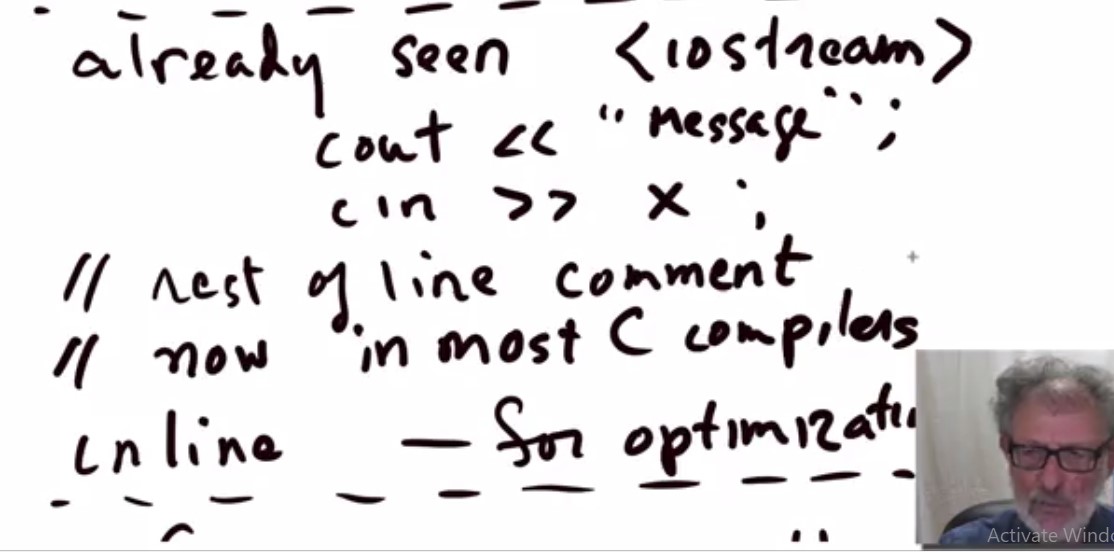 already seen <iostream>
cout << "message";
cin >> x ;
// rest of line comment
// now in most C compilers
inline — for optimizatio
Activate Windo